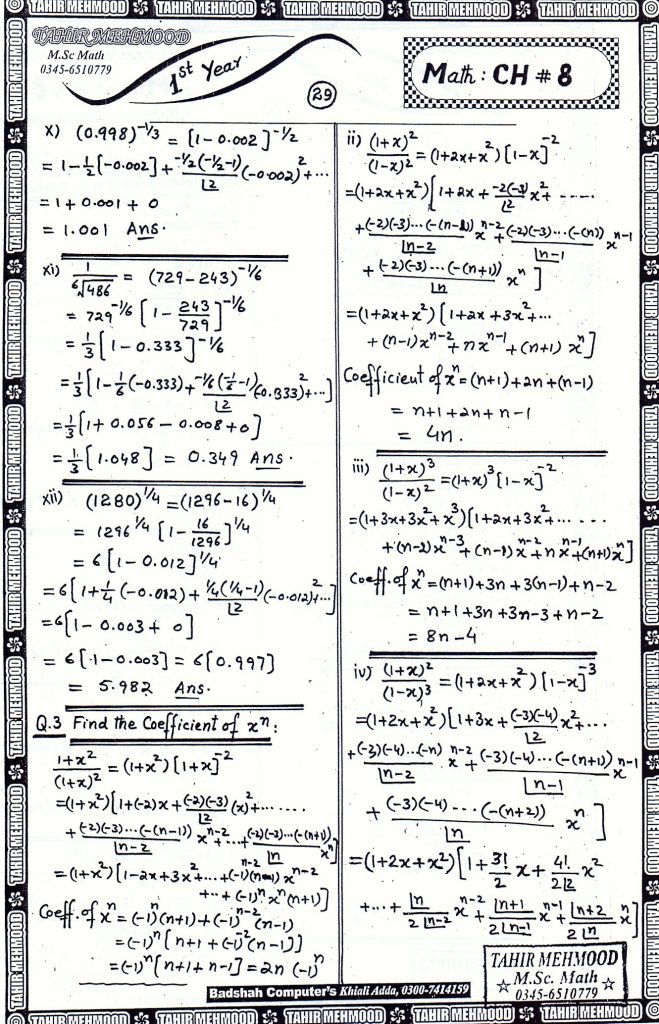 TAHIR MEHMOOD TAHIR MEHMOOD TAHIR MEHMOOD TAHIR MEHMOOD TAHIR MEHMOOD
TAHIR MEHMOOD
M.Sc Math
0345-6510779
1st Year
29
Math : CH # 8
x) (0.998)^(-1/3) = [1-0.002]^(-1/2)
= 1-1/2[-0.002] + (-1/2(-1/2-1))/⌊2 (-0.002)^2+...
= 1 + 0.001 + 0
= 1.001 Ans.
xi) 1/⁶√486 = (729-243)^(-1/6)
= 729^(-1/6) [1 - 243/729]^(-1/6)
= 1/3 [1-0.333]^(-1/6)
= 1/3[1-1/6(-0.333)+(-1/6(-1/6-1))/⌊2 (-0.333)^2+...]
= 1/3[1+0.056-0.008+0]
= 1/3[1.048] = 0.349 Ans.
xii) (1280)^(1/4) = (1296-16)^(1/4)
= 1296^(1/4) [1-16/1296]^(1/4)
= 6[1-0.012]^(1/4)
= 6[1+1/4(-0.012)+(1/4(1/4-1))/⌊2 (-0.012)^2+...]
= 6[1-0.003+0]
= 6[1-0.003] = 6[0.997]
= 5.982 Ans.
Q.3 Find the Coefficient of x^n:
(1+x^2)/(1+x)^2 = (1+x^2)[1+x]^(-2)
= (1+x^2)[1+(-2)x+((-2)(-3))/⌊2 (x)^2+.......
+ ((-2)(-3)...(-(n-1)))/⌊n-2 x^(n-2)+...+((-2)(-3)...(-(n+1)))/⌊n x^n]
= (1+x^2)[1-2x+3x^2+...+(-1)^(n-2)(n-1)x^(n-2)
+..+(-1)^n x^n(n+1)]
Coeff. of x^n = (-1)^n(n+1)+(-1)^(n-2)(n-1)
= (-1)^n[n+1+(-1)^(-2)(n-1)]
= (-1)^n[n+1+n-1] = 2n(-1)^n
ii) (1+x)^2/(1-x)^2 = (1+2x+x^2)[1-x]^(-2)
= (1+2x+x^2)[1+2x+(-2(-3))/⌊2 x^2+.....
+ ((-2)(-3)...(-(n-1)))/⌊n-2 x^(n-2)+((-2)(-3)...(-(n)))/⌊n-1 x^(n-1)
+ ((-2)(-3)...(-(n+1)))/⌊n x^n]
= (1+2x+x^2)[1+2x+3x^2+...
+(n-1)x^(n-2)+nx^(n-1)+(n+1)x^n]
Coefficient of x^n = (n+1)+2n+(n-1)
= n+1+2n+n-1
= 4n.
iii) (1+x)^3/(1-x)^2 = (1+x)^3[1-x]^(-2)
= (1+3x+3x^2+x^3)[1+2x+3x^2+.....
+(n-2)x^(n-3)+(n-1)x^(n-2)+nx^(n-1)+(n+1)x^n]
Coeff. of x^n = (n+1)+3n+3(n-1)+n-2
= n+1+3n+3n-3+n-2
= 8n-4
iv) (1+x)^2/(1-x)^3 = (1+2x+x^2)[1-x]^(-3)
= (1+2x+x^2)[1+3x+((-3)(-4))/⌊2 x^2+...
+ ((-3)(-4)...(-n))/⌊n-2 x^(n-2)+((-3)(-4)...(-(n+1)))/⌊n-1 x^(n-1)
+ ((-3)(-4)....(-(n+2)))/⌊n x^n]
= (1+2x+x^2)[1+3!/2 x+4!/2⌊2 x^2
+...+⌊n/2⌊n-2 x^(n-2)+⌊n+1/2⌊n-1 x^(n-1)+⌊n+2/2⌊n x^n]
TAHIR MEHMOOD
M.Sc. Math
0345-6510779
Badshah Computer's Khiali Adda, 0300-7414159
TAHIR MEHMOOD TAHIR MEHMOOD TAHIR MEHMOOD TAHIR MEHMOOD TAHIR MEHMOOD